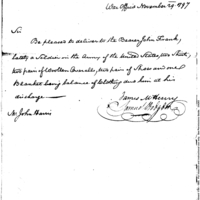 War Office November 29 1797
Sir
Be pleased to deliver to the Bearer John Frank,
Lately a Soldier in the Army of the United States, one Shirt,
two pair of Woollen Overalls, two pair of Shoes and one
Blanket being balance of Clothing due him at his
discharge
James McHenry
Mr John Harris